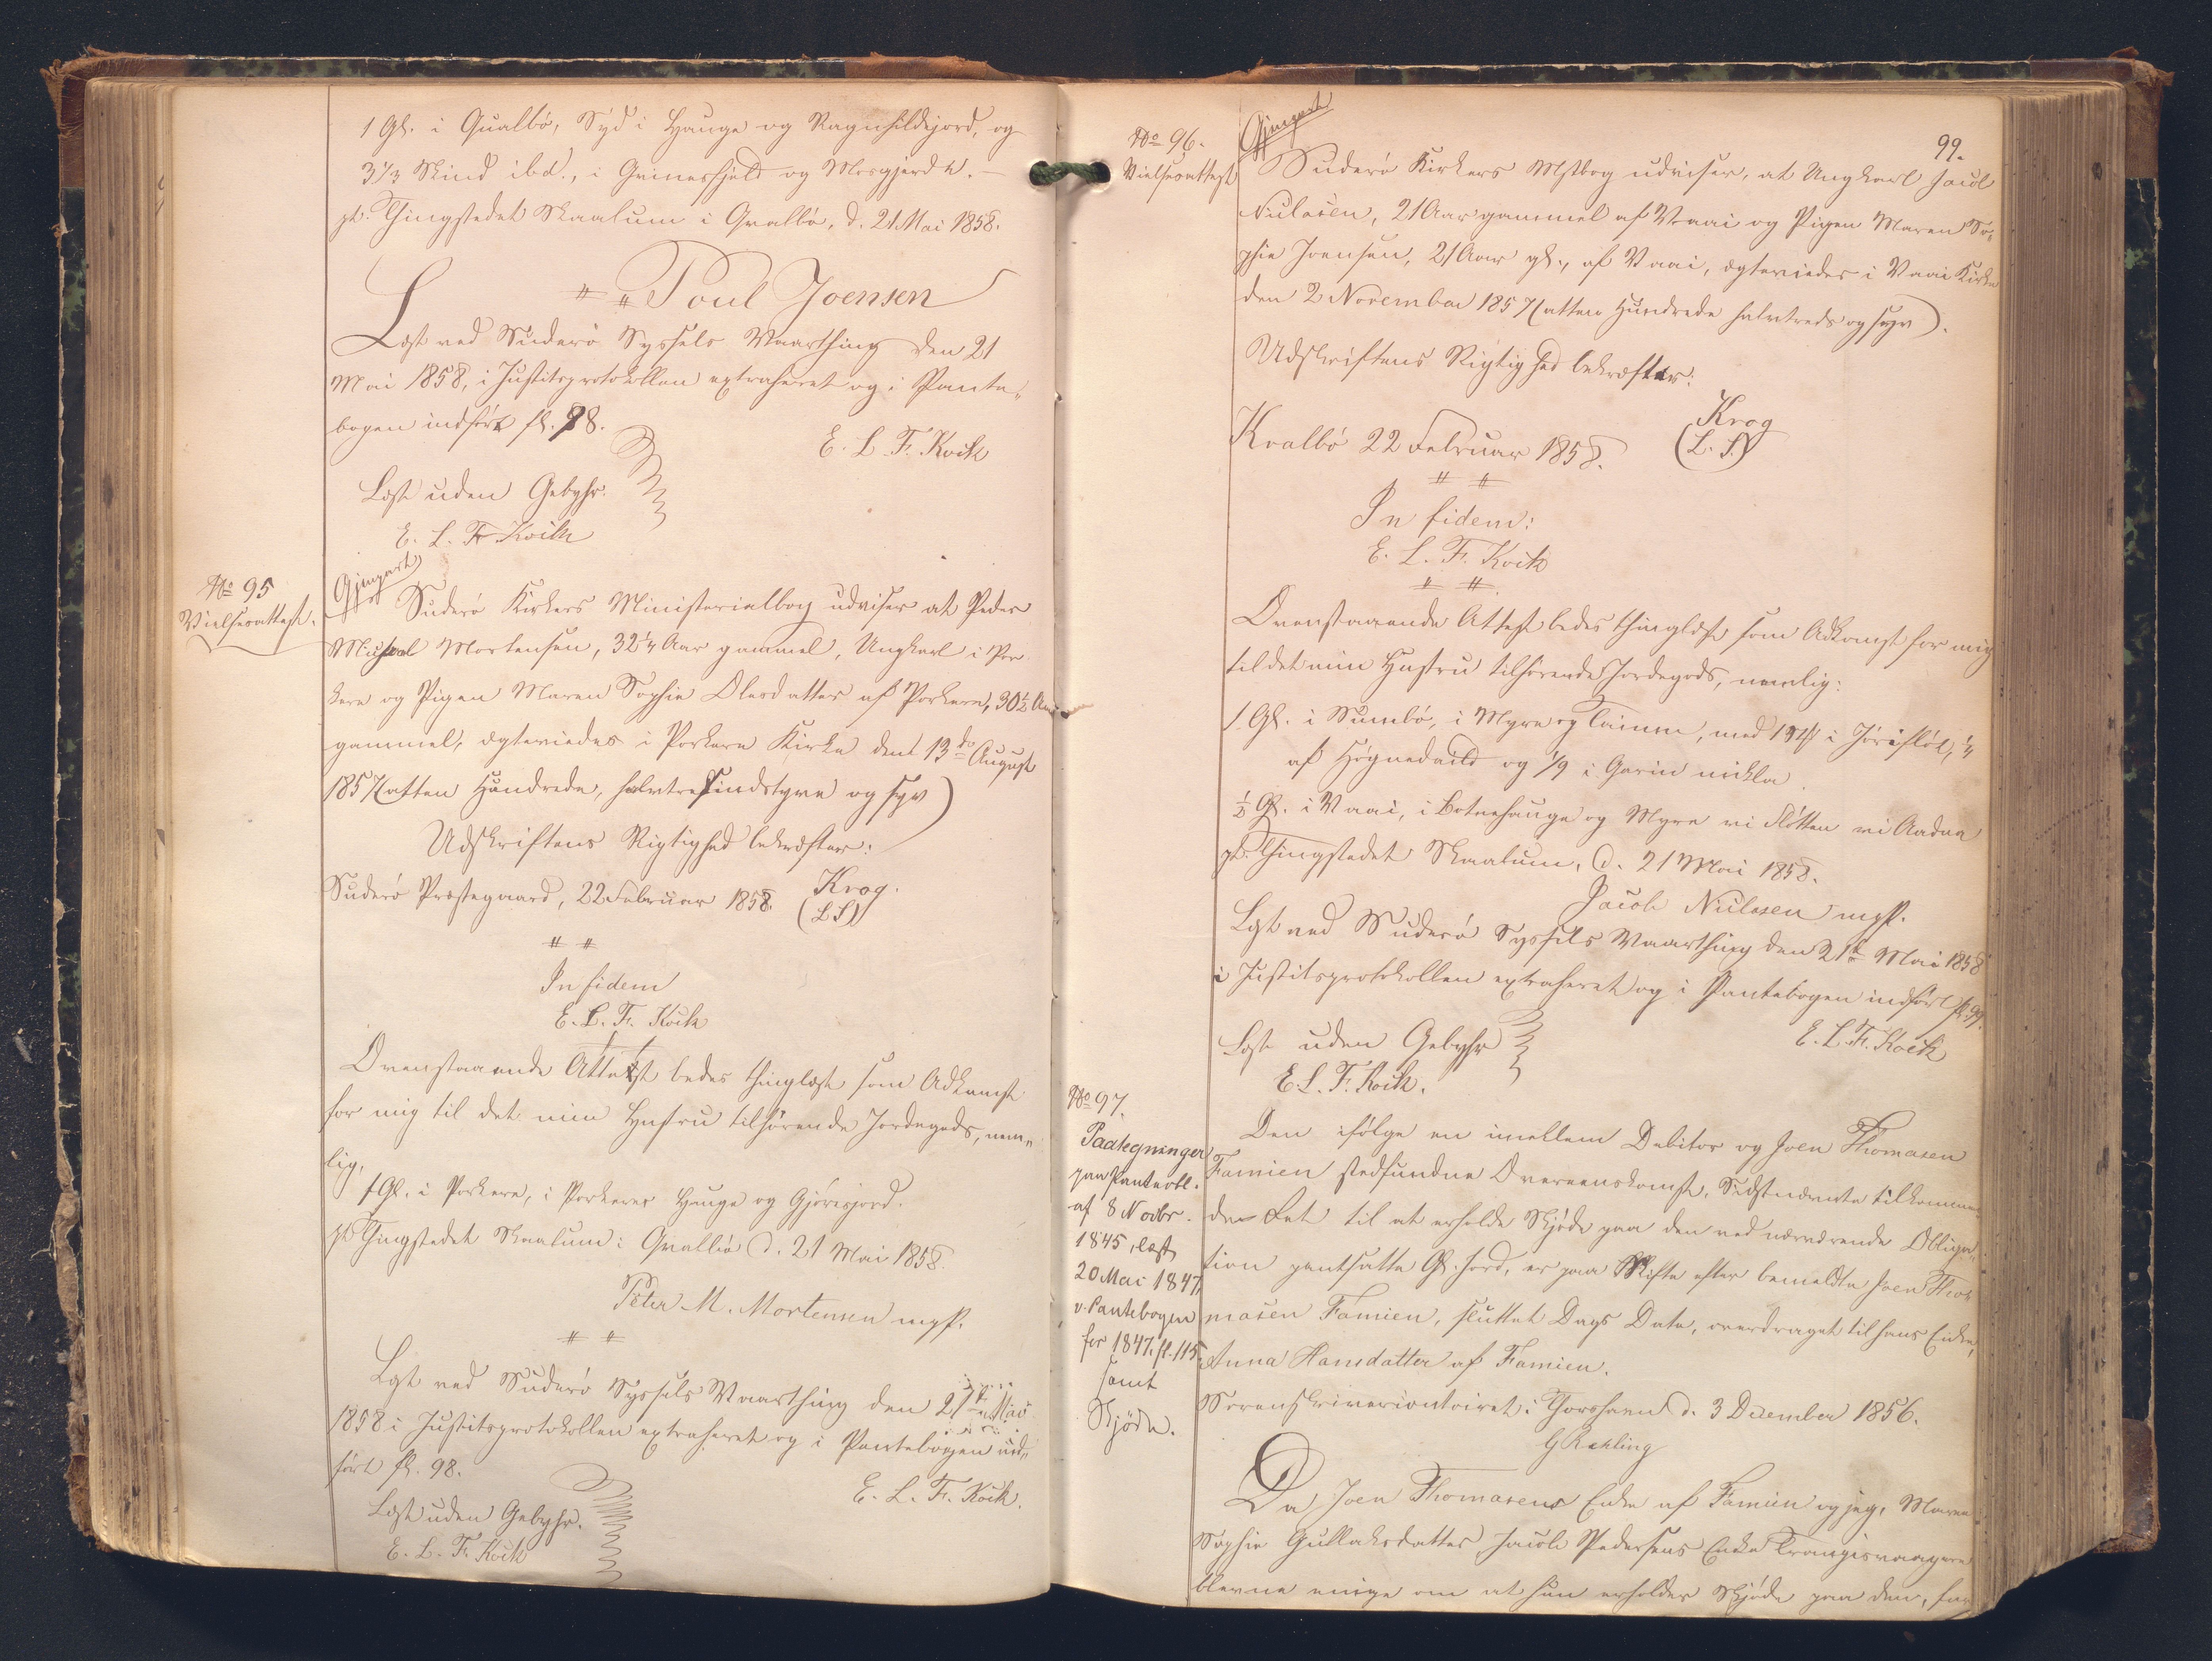 1 Gl. i Qualbö, Syd i Hauge og Ragnhildsjord, og
3 1/3 Skind ibd., i Grinesfjeld og Morgjerd
pt. Thingstedet Skaalum i Qvalbö, d. 21 Mai 1858.
Poul Joensen
Læst ved Suderö Syssels Vaarthing den 21
Mai 1858, i Justitsprotokollen extraheret og i Pante„
bogen indfört fl. 98.
E. L. F. Koch
Læst uden Gebyhr.
E. L. F. Koch
No 95
Vielsesattest.
Gjenpart
Suderö Kirkers Ministerialbog udviser at Peder
Michael Mortensen, 32 1/4 Aar gammel, Ungkarl i Por„
kere og Pigen Maren Sophie Olesdatter af Porkere, 30 1/2 Aar
gammel, ægteviedes i Porkere Kirke den 13de August
1857 (atten Hundrede, halvtresindstyve og syv)
Udskriftens Rigtighed bekræfter:
Suderö Præstegaard, 22 Februar 1858.
Krog.
(L S)
In fidem
E. L. F. Koch
Ovenstaaende Attest bedes thinglæst som Adkomst
for mig til det min Hustru tilhörende Jordegods, nem„
lig,
1 Gl. i Porkere, i Porkeres Hauge og Gjörisjord.
pt Thingstedet Skaalum i Qvalbö d. 21 Mai 1858.
Peter M. Mortensen mpp.
Læst ved Suderö Syssels Vaarthing den 21de Mai
1858 i Justitsprotokollen extraheret og i Pantebogen ind„
fört fl. 98.
E. L. F. Koch.
Læst uden Gebyhr.
E. L. F. Koch
99.
No 96.
Vielsesattest
Gjenpart
Suderö Kirkers Mstbog udviser, at Ungkarl Jacob
Niclasen, 21 Aar gammel af Vaai og Pigen Maren So„
phie Joensen, 21 Aar gl., af Vaai, ægteviedes i Vaai Kirke
den 2 November 1857 (atten Hundrede halvtreds og syv).
Udskriftens Rigtighed bekræfter:
Krog
(L. S.)
Kvalbö 22 Februar 1858.
In fidem:
E. L. F. Koch
Ovenstaaende Attest bedes thinglæst som Adkomst for mig
til det min Hustru tilhörende Jordegods, nemlig:
1 Gl. i Sumbö, i Myre og, med i, 1/4
af og 1/9 i Garin mikla
1/2 Gl. i Vaai, i Botnehauge og Myre vi Flötten vi Aadna
pt. Thingstedet Skaalum, d. 21 Mai 1858.
Jacob Niclasen mpp.
Læst ved Suderö Syssels Vaarthing den 21de Mai 1858
i Justitsprotokollen extraheret og i Pantebogen indfört fl. 99.
E. L. F. Koch
Læst uden Gebyhr
E. L. F. Koch.
No 97.
Paategninger
paa Panteobl.
af 8 Novbr.
1845, læst
20 Mai 1847,
v. Pantebogen
for 1847. fl. 115,
samt
Skjöde.
Den ifölge en imellem Debitor og Joen Thomasen
Famien stedfundne Overeenskomst, Sidstnævnte tilkommen
de Ret til at erholde Skjöde paa den ved nærværende Obliga„
tion pantsatte Gl. Jord, er paa Skifte efter bemeldte Joen Tho
masen Famien, sluttet Dags Dato, overdraget til hans Enke,
Anna Hansdatter af Famien.
Sorenskrivercontoiret i Thorshavn d. 3 December 1856.
Da Joen Thomasens Enke af Famien og jeg, Maren
Sophie Gullaksdatter Jacob Pedersens Enke Trangisvaag ere
blevne enige om at hun erholder Skjöde paa den, for